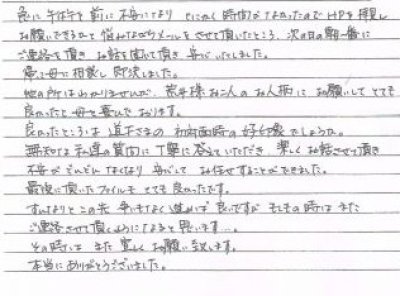 急に 手術を 前に 不安になり とにかく 時間が なかったので HPを 拝見し
お願いできるかと 悩みながらメールを させて頂いたところ、次の日の 朝一番に
ご連絡を頂き お話を聞いて頂き 安心いたしました。
電話で母に相談し 即決しました。
他の所はわかりませんが、 お二人の お人柄に お願いして とても
良かったと 母と喜んで おります。
良かったところは 道下さまの 初対面時の 好印象でしょうか。
無知な 私達の質問に 丁寧に 答えていただき、 楽しく お話させて頂き
不安が どんどん なくなり 安心して お任せすることができました。
最後に頂いたファイルも とても 良かったです。
すんなりと この先 争いもなく 進めば 良いですが もしもの時は また
ご連絡させて 頂くようになると 思います…。
その時は また 宜しく お願い致します。
本当に ありがとうございました。